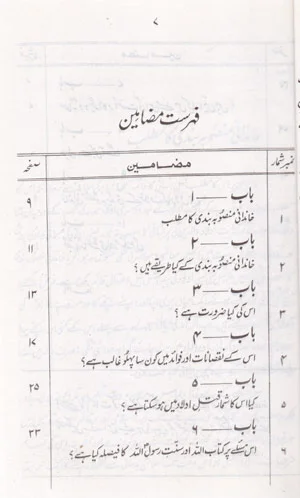 ۷
فہرست مضامین
نمبر شمار مضامین صفحہ
باب ـــــ ۱ ۹
۱ خاندانی منصوبہ بندی کا مطلب
باب ـــــ ۲ ۱۱
۲ خاندانی منصوبہ بندی کے کیا طریقے ہیں؟
باب ـــــ ۳ ۱۳
۳ اس کی کیا ضرورت ہے؟
باب ـــــ ۴ ۱۷
۴ اس کے نقصانات اور فوائد میں کون سا پہلو غالب ہے؟
باب ـــــ ۵ ۲۵
۵ کیا اس کا شمار قتل اولاد میں ہو سکتا ہے؟
باب ـــــ ۶ ۳۳
۶ اس مسئلے پر کتاب اللہ اور سنت رسول اللہ کا فیصلہ کیا ہے؟